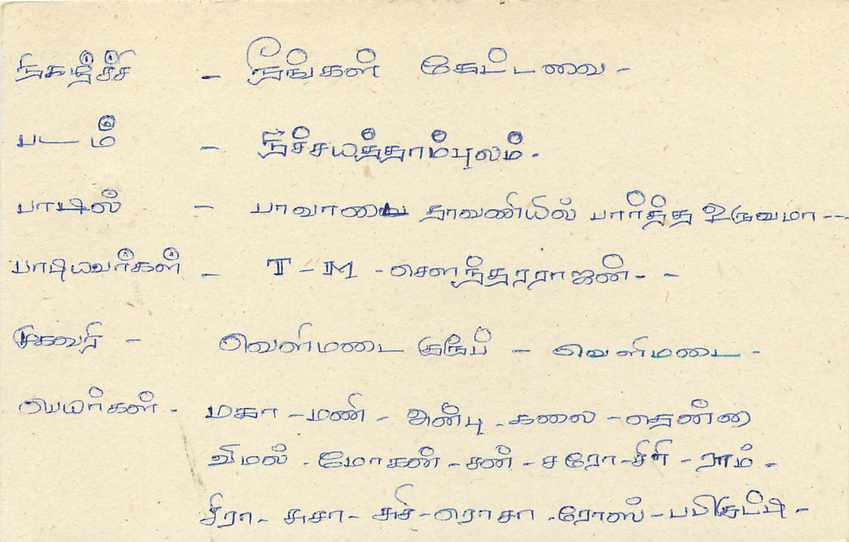 நிகழ்ச்சி - நீங்கள் கேட்டவை -
படம் - நிச்சயத்தாம்பூலம்.
பாடல் - பாவாடை தாவணியில் பார்த்த உருவமா ---
பாடியவர்கள் - T - M - சௌந்தரராஜன் - -
முகவரி - வெளிமடை குரூப் - வெளிமடை -
பெயர்கள் - மகா - மணி - அன்பு - கலை -
விமல் - மோகன் - சன் - சரோ - சிரி - ராம் -
சீரா - சுசா - சுசி - ரொசா - ரோஸ் -